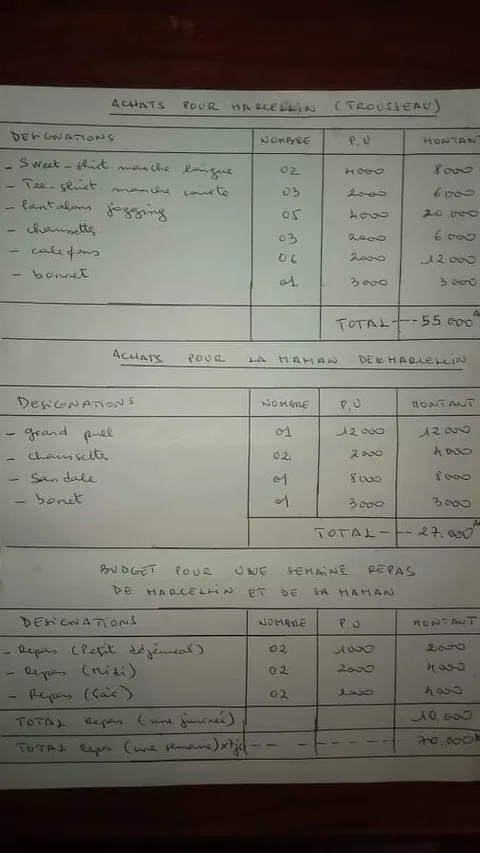 ACHATS POUR MARCELLIN (TROUSSEAU)
DESIGNATIONS NOMBRE P.U MONTANT
- Sweet-shirt manche longue 02 4000 8000
- Tee-shirt manche courte 03 2000 6000
- Pantalons jogging 05 4000 20 000
- chaussette 03 2000 6 000
- caleçons 06 2000 12 000
- bonnet 01 3000 3 000
TOTAL ---- 55.000 A
ACHATS POUR LA MAMAN DE MARCELLIN
DESIGNATIONS NOMBRE P.U MONTANT
- grand pull 01 12 000 12 000
- chaussette 02 2000 4000
- Sandale 01 8000 8000
- bonet 01 3000 3000
TOTAL ---- 27.000 A
BUDGET POUR UNE SEMAINE REPAS
DE MARCELLIN ET DE SA MAMAN
DESIGNATIONS NOMBRE P.U MONTANT
- Repas (Petit déjeuner) 02 1000 2000
- Repas (Midi) 02 2000 4000
- Repas (Soir) 02 2000 4000
TOTAL Repas (une journée) 10.000
TOTAL Repas (une semaine) x7jr -- - - - - - - 70.000 A